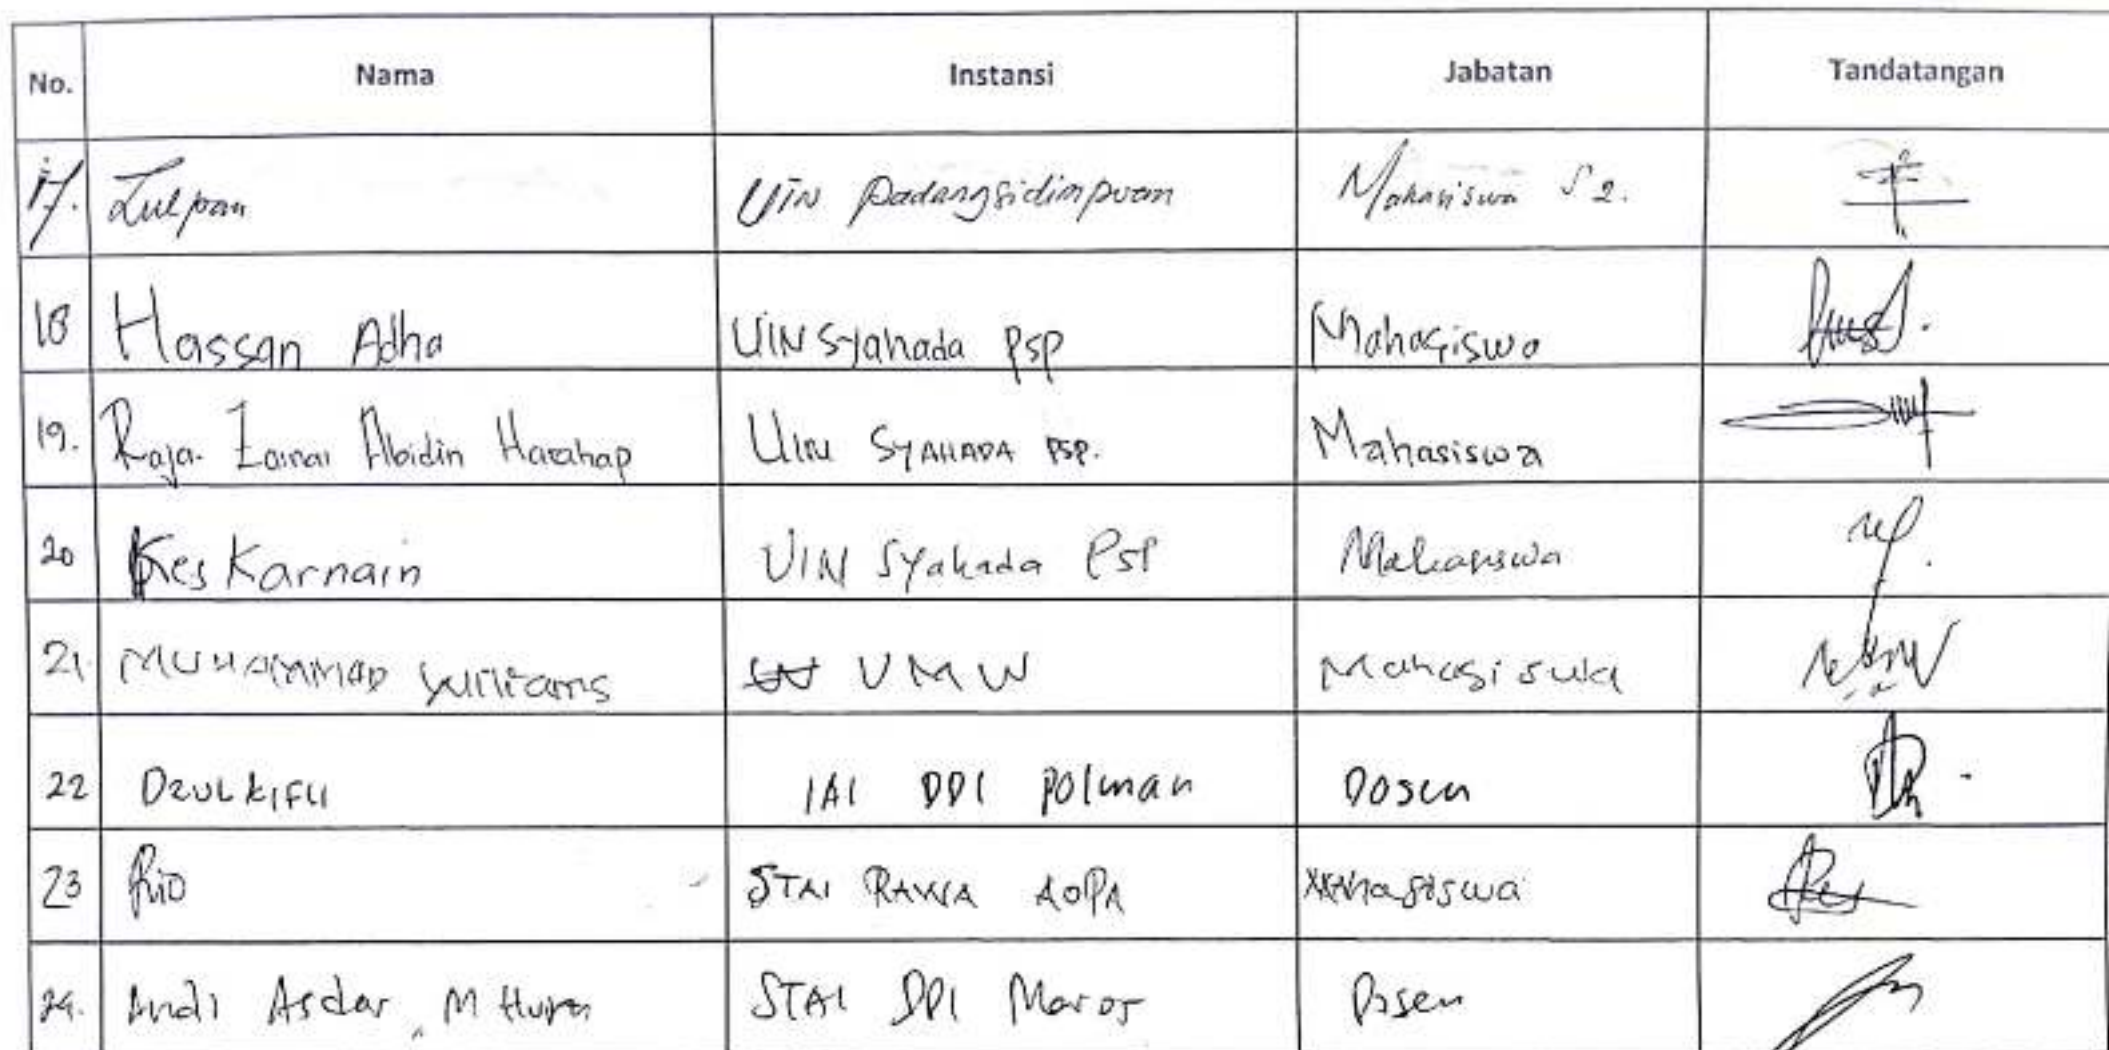 No. Nama Instansi Jabatan Tandatangan
17. Zulpan UIN Padangsidimpuan Mahasiswa S2.
18 Hassan Adha UIN Syahada PSP Mahasiswa
19. Raja Zainal Abidin Harahap UIN SYAHADA PSP. Mahasiswa
20 Kes Karnain UIN Syahada PSP Mahasiswa
21. MUHAMMAD Williams UMW Mahasiswa
22 DZULKIFLI IAI DDI Polman Dosen
23 Rio STAI RAWA AOPA Mahasiswa
24. Andi Asdar M STAI DDI Maros Dosen